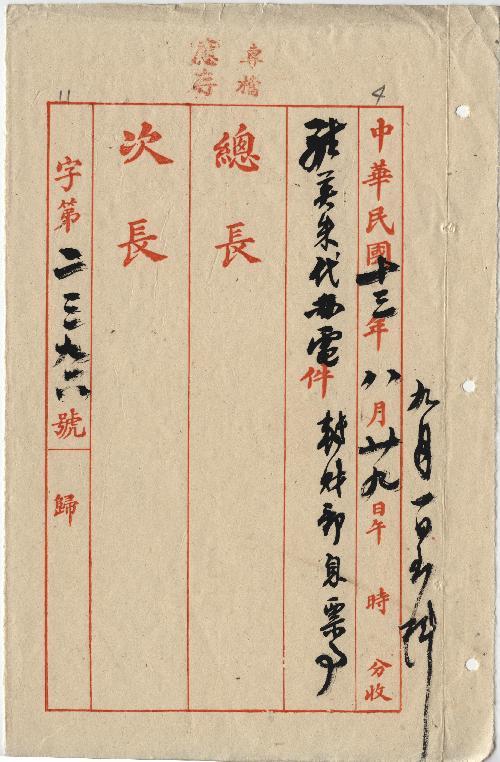 專檔
4
11
九月一日到科
中華民國十三年八月廿九日午 時 分收
英朱代辦電 件 財部息票事
總長
次長
字第二三九六號 歸